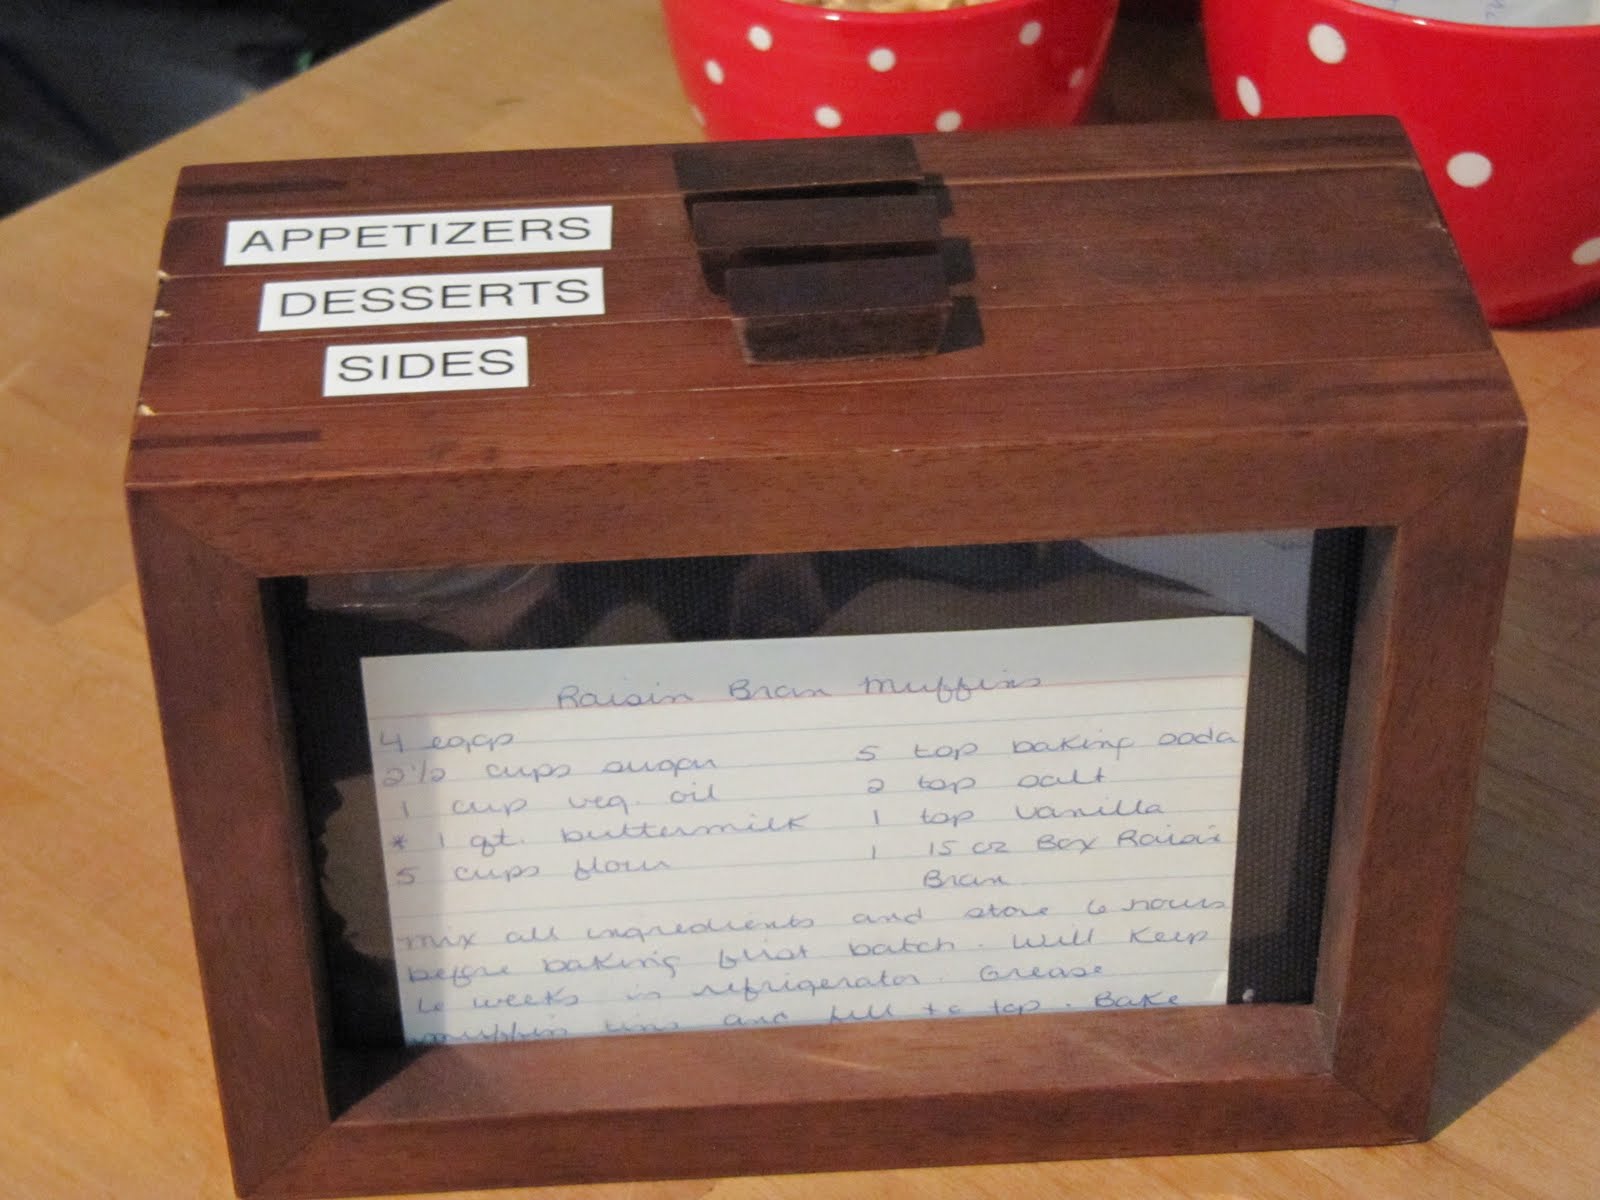 APPETIZERS
DESSERTS
SIDES
Raisin Bran Muffins
4 eggs
2 1/2 cups sugar
1 cup veg. oil
* 1 qt. buttermilk
5 cups flour
5 tsp baking soda
2 tsp salt
1 tsp vanilla
1 15 oz Box Raisin
Bran
Mix all ingredients and store 6 hours
before baking first batch. Will keep
6 weeks in refrigerator. Grease
muffin tins and fill to top. Bake